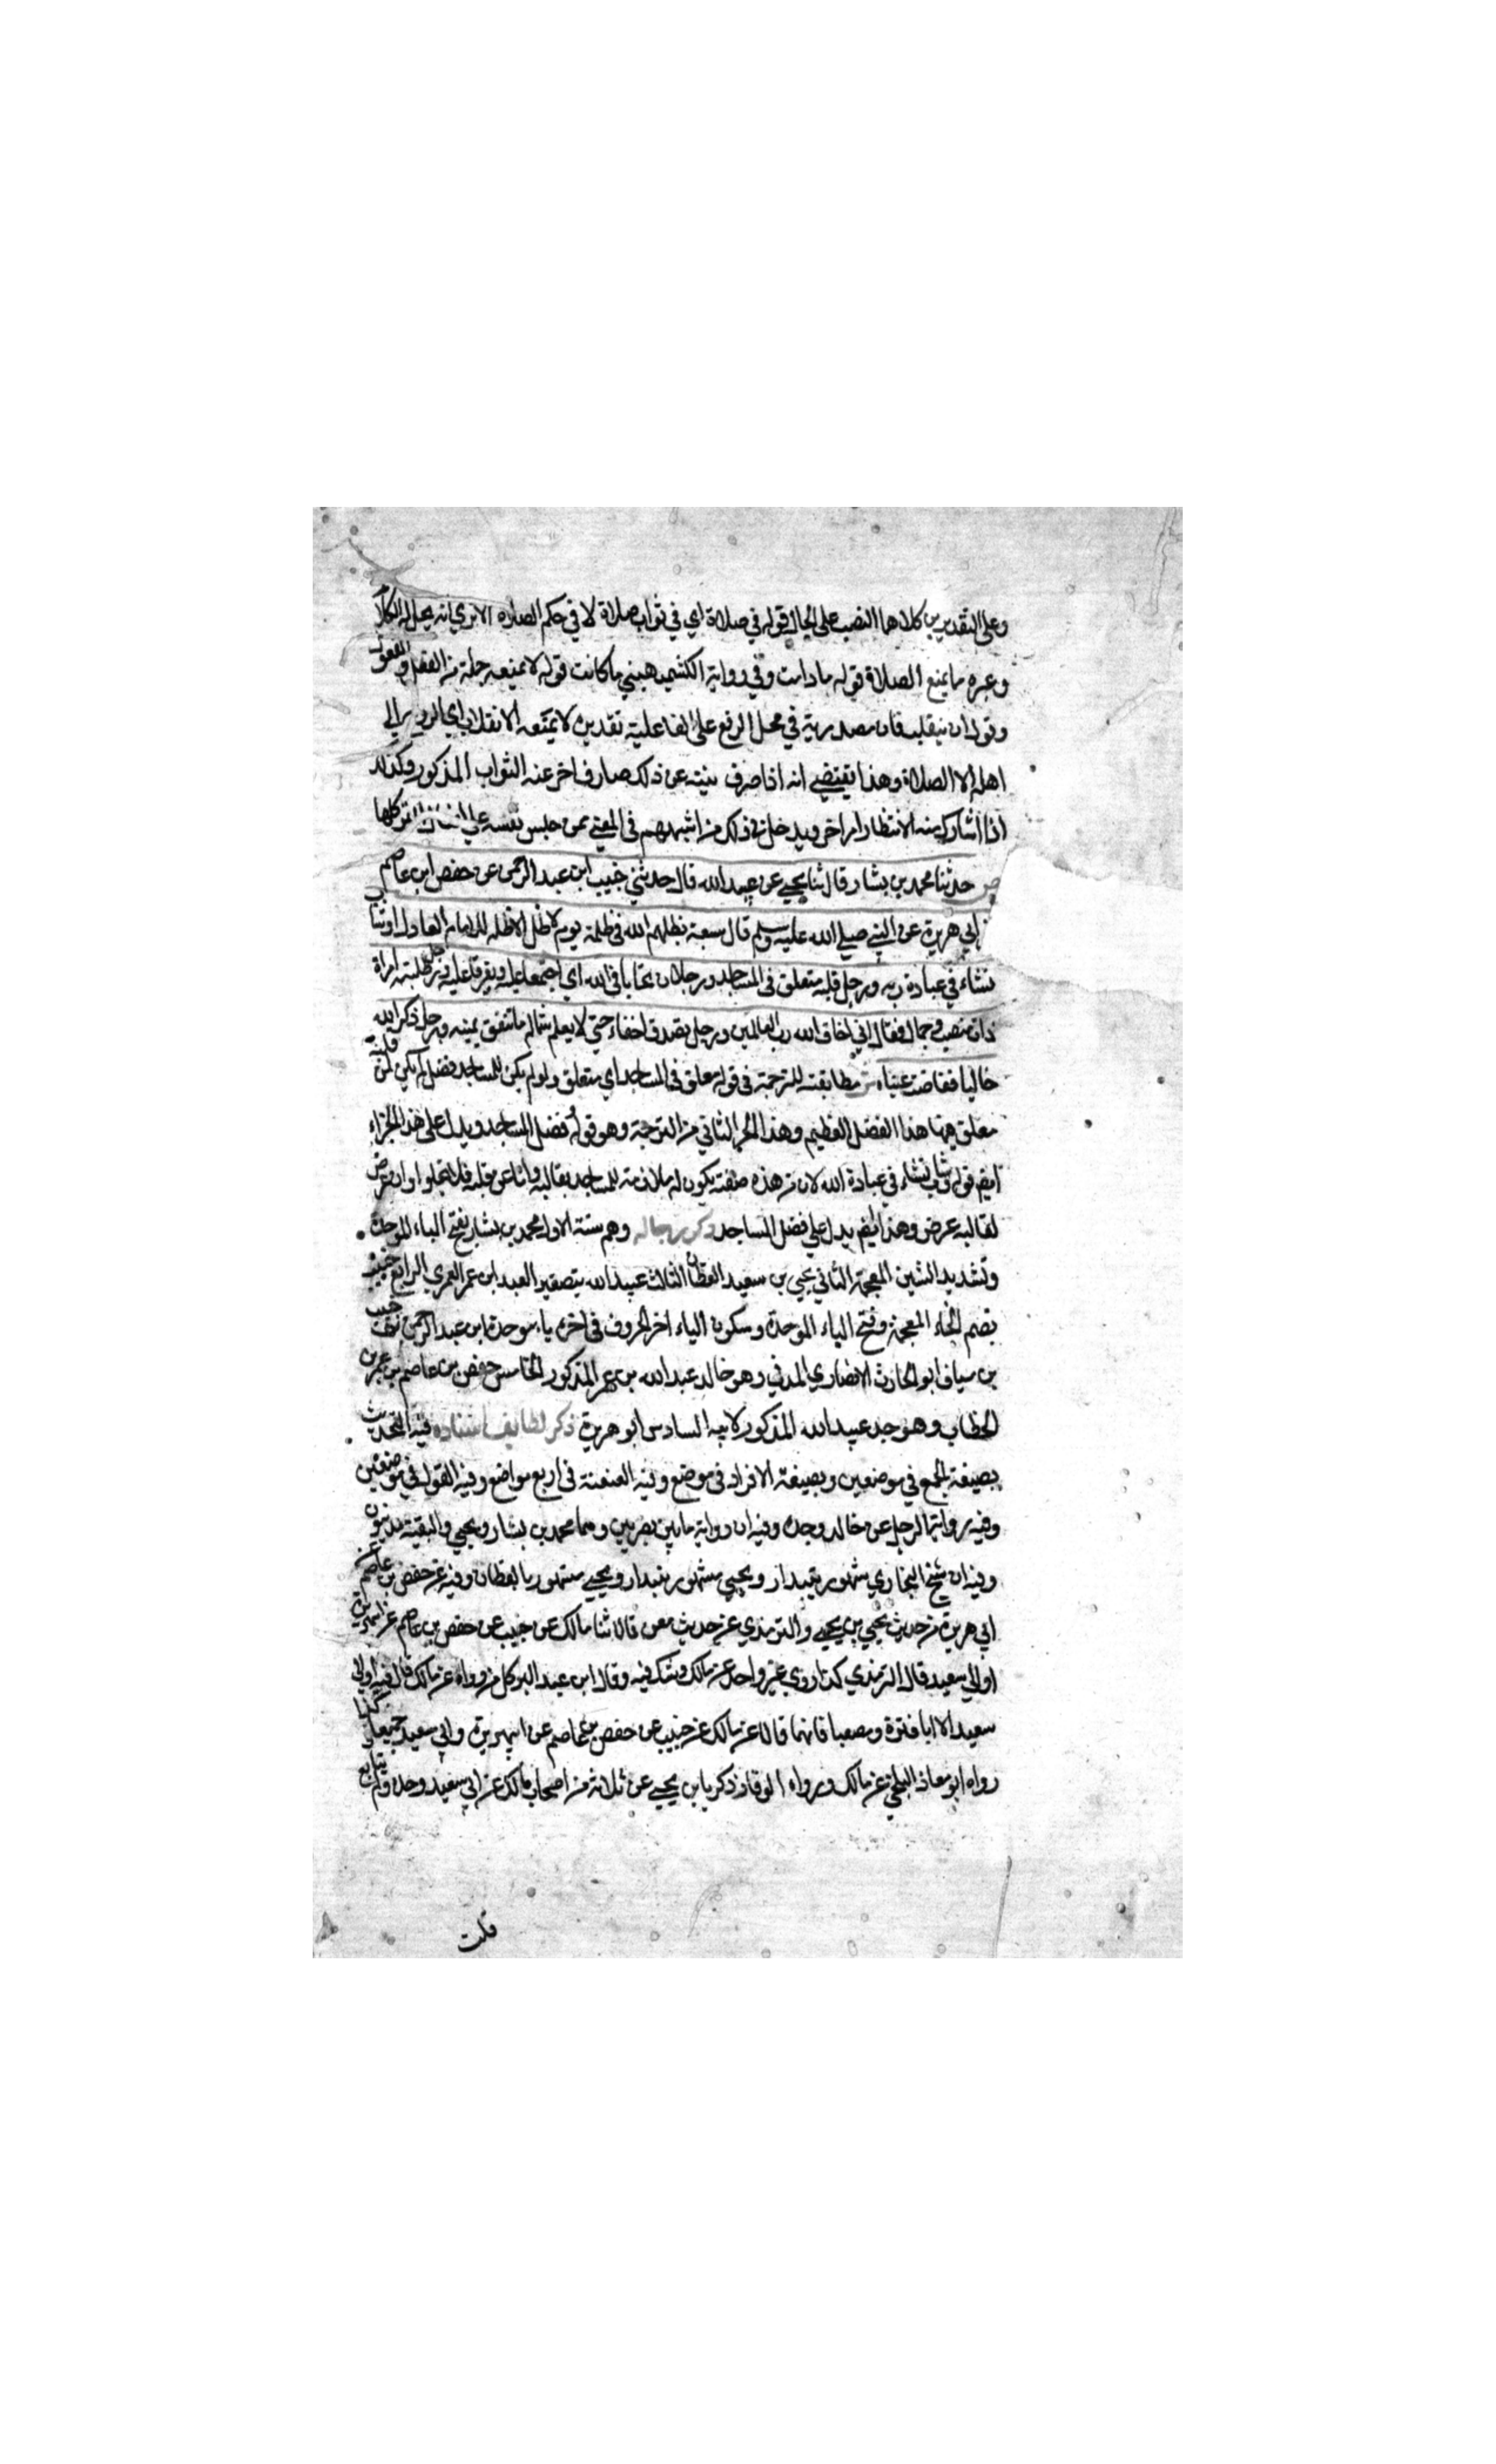 وعلى التقديرين كلاهما النصب على الحال قوله في صلاة اي في ثواب صلاة لا في حكم الصلاه الا تري انه يحل له الكلام
وغيره ما يمنع الصلاة قوله ما دامت وفي رواية الكشميهيني ما كانت قوله لا يمنعه جملة من الفعل والمفعول
وقوله ان ينقلب فان مصدرية في محل الرفع على الفاعلية تقديره لا يمنعه الانقلاب اي الي
اهله الا الصلاة وهذا يقتضي انه اذا صرف نيته عن ذلك صارف اخر عنه الثواب المذكور وكذلك
اذا شارك نية الانتظار امر اخر ويدخل في ذلك من اشبههم في المعني ممن حبس نفسه علي كلها
ص حدثنا محمد بن بشار قال ثنا يحيي عن عبيد الله قال حدثني خبيب ابن عبد الرحمن عن حفص ابن عاصم
ابي هريرة عن النبي صلي الله عليه وسلم قال سبعة يظلهم الله في ظله يوم لا ظل الا ظله الامام العادل وشاب
نشاء في عبادة ربه ورجل قلبه متعلق في المساجد ورجلان تحابا في الله اي اجتمعا عليه وتفرقا عليه ورجل طلبته امراة
ذات منصب وجمال فقال اني اخاف الله رب العالمين ورجل تصدق اخفاء حتي لا يعلم شماله ما تنفق يمينه ورجل ذكر الله
خاليا ففاضت عيناه ش مطابقته للترجمة في قوله معلق في المساجد اي متعلق ولو لم يكن للمساجد فضل لم يكن لمن قلبه
معلق بها هذا الفضل العظيم وهذا الجزء الثاني من الترجمة وهو قوله وفضل المساجد ويدل على هذا الجزاء
ايضم قوله وشاب نشاء في عبادة الله لان من هذه صفته يكون له ملازمة للمساجد بقالبه واما عن قلبه فلا تخلوا وان عرض
لقالبه عرض وهذا ايضم يدل علي فضل المساجد ذكر رجاله وهم ستة الاول محمد بن بشار بفتح الباء الموحدة
وتشديد الشين المعجمة الثاني يحيي بن سعيد القطان الثالث عبيد الله بتصغير العبد ابن عمر العمري الرابع خبيب
بضم الخاء المعجمة وفتح الباء الموحدة وسكون الياء اخر الحروف في اخره باء موحدة ابن عبد الرحمن خبيب
بن سياف ابو الحارث الانصاري المدني وهو خال عبد الله بن عمر المذكور الخامس حفص بن عاصم بن عمر بن
الخطاب وهو جد عبيد الله المذكور لابيه السادس ابو هريرة ذكر لطايف اسناده فيه التحديث
بصيغة الجمع في موضعين وبصيغة الافراد في موضع وفيه العنعنة في اربع مواضع وفيه القول في موضعين
وفيه رواية الرجل عن خاله وجده وفيه ان رواية ما بين بصريين وهما محمد بن بشار ويحيي والبقية مدنيون
وفيه ان شيخ البخاري مشهور ببندار ويحيي مشهور ببندار ويحيي مشهور بالقطان وفيه عن حفص بن عاصم
ابي هريرة من حديث يحيي بن يحيي والترمذي عن حديث معن قالا ثنا مالك عن خبيب عن حفص بن عاصم عن ابي هريرة
او ابي سعيد قال الترمذي كذا روي غير واحد عن مالك وشك فيه وقال ابن عبد البر كل من رواه عن مالك قال فيه او ابي
سعيد الا ابا قرة ومصعبا فانهما قالا عن مالك عن خبيب عن حفص بن عاصم عن ابي هريرة وابي سعيد جميعا وكذا
رواه ابو معاذ البلخي عن مالك ورواه الوقار زكريا بن يحيي عن ثلاثة من اصحاب مالك عن ابي سعيد وحده ولم يتابع
قلت